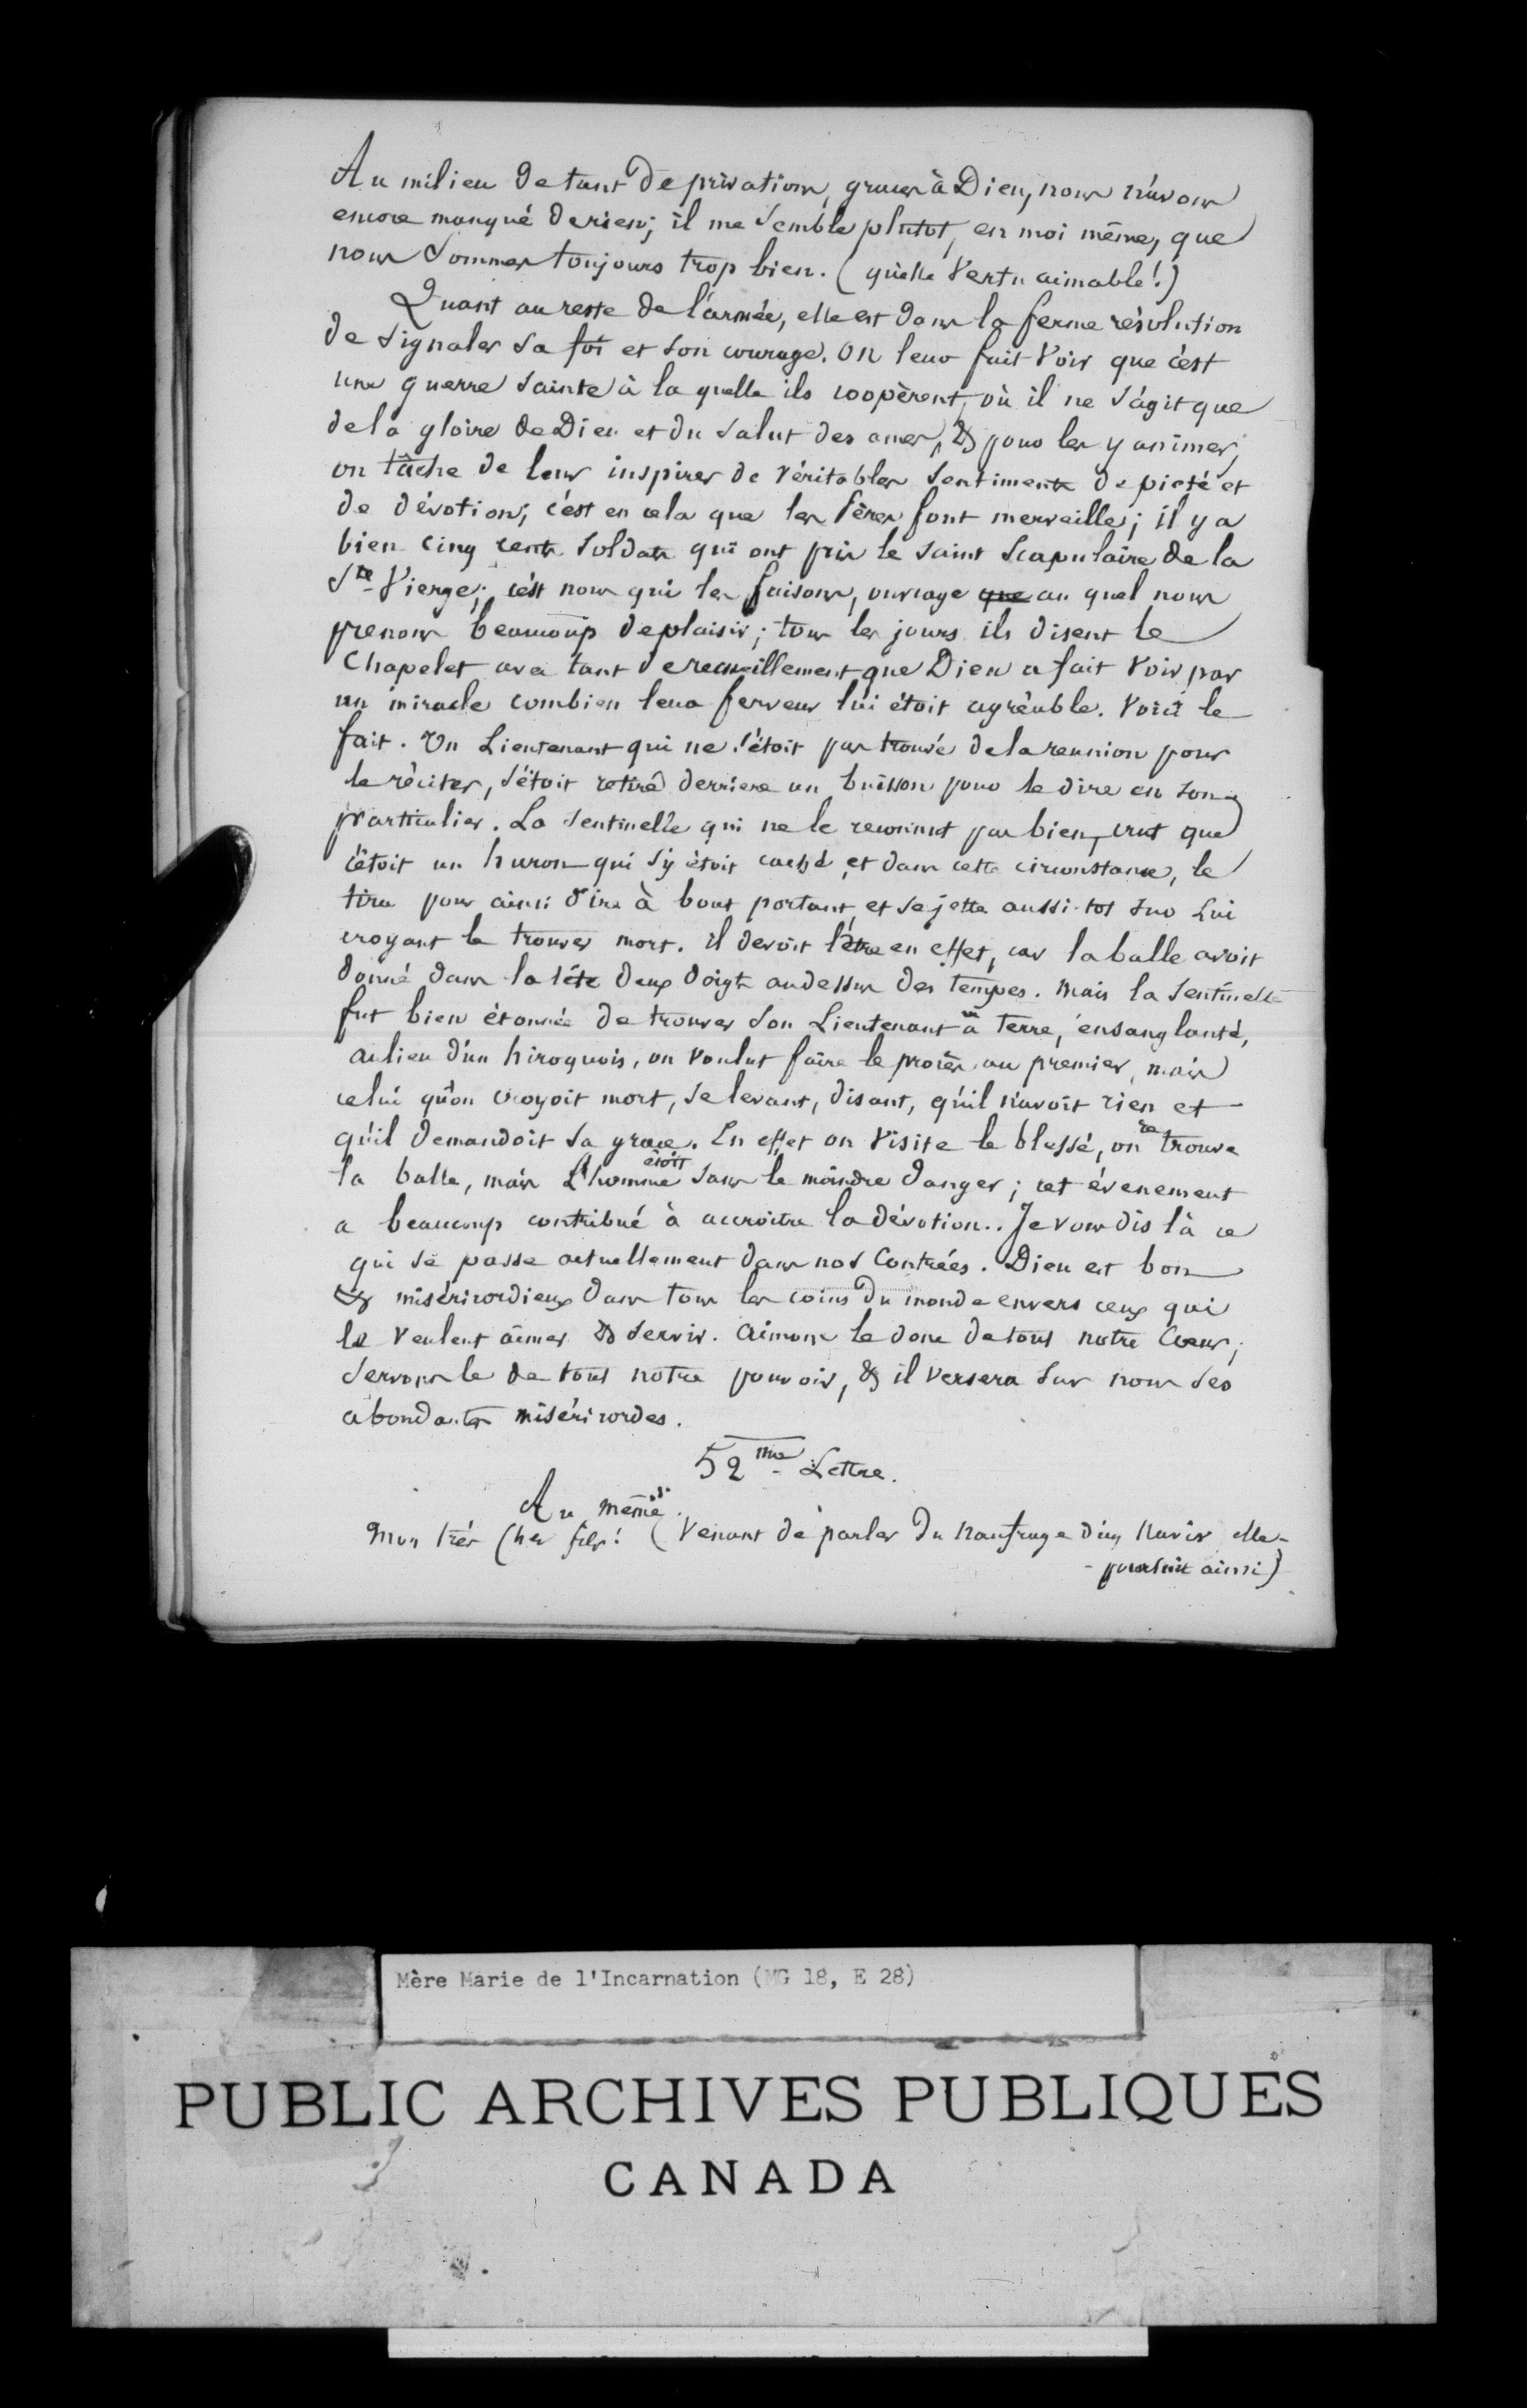 Au milieu de tant de privations, graces à Dieu, nous n'avons
encore manqué de rien; il me semble plutot, en moi même, que
nous sommes toujours trop bien. (quelle vertu aimable!)
Quant au reste de l'armée, elle est dans la ferme résolution
de signaler sa foi et son courage. On leur fait voir que c'est
une guerre sainte à la quelle ils coopèrent, où il ne s'agit que
de la gloire de Dieu et du salut des ames, & pour les y animer,
on tâche de leur inspirer de véritables sentiments de pieté et
de dévotion; c'est en cela que les Pères font merveille; il y a
bien cinq cents soldats qui ont pris le saint Scapulaire de la
Ste Vierge; c'est nous qui les faisons, ouvrage que au quel nous
prenons beaucoup de plaisir; tous les jours ils disent le
Chapelet avec tant de recueillement que Dieu a fait voir par
un miracle combien leur ferveur lui étoit agréable. Voici le
fait. Un Lieutenant qui ne s'étoit pas trouvé de la reunion pour
le réciter, s'étoit retiré derriere un buisson pour le dire en son
particulier. La sentinelle qui ne le reconnut pas bien, crut que
c'étoit un huron qui s'y étoit caché, et dans cette circonstance, le
tira pour ainsi dire à bout portant, et se jetta aussi-tot sur lui
croyant le trouver mort. il devoit l'être en effet, car la balle avoit
donné dans la tête deux doigts au dessus des tempes. mais la sentinelle
fut bien étonnée de trouver son Lieutenant à terre, ensanglanté,
au lieu d'un hiroquois, on voulut faire le procès au premier, mais
celui qu'on croyoit mort, se levant, disant, qu'il n'avoit rien et
qu'il demandoit sa grace. En effet on visite le blessé, on re trouve
la balle, mais l'homme étoit sans le moindre danger; cet évenement
a beaucoup contribué à accroitre la dévotion.. Je vous dis là ce
qui se passe actuellement dans nos Contrées. Dieu est bon
& miséricordieux dans tous les coins du monde envers ceux qui
le veulent aimer & servir. Aimons le donc de tout notre Coeur;
servons le de tout notre pouvoir, & il versera sur nous ses
abondantes miséricordes.
52me Lettre.
Au même.
Mon très Cher fils! (Venant de parler du Naufrage d'un Navir elle-
- poursuit ainsi)
Mère Marie de l'Incarnation (MG 18, E 28)
PUBLIC ARCHIVES PUBLIQUES
CANADA